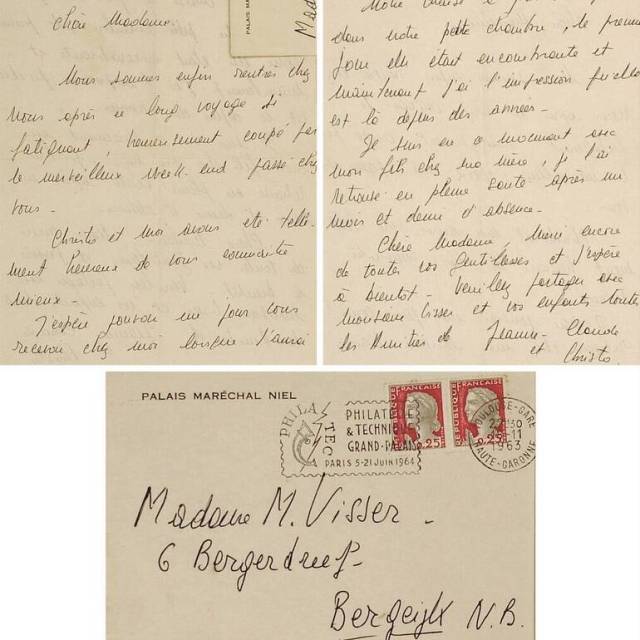 Chère Madame,
Nous sommes enfin rentrés chez
nous après ce long voyage si
fatiguant, heureusement coupé par
le merveilleux week-end passé chez
vous -
Christo et moi avons été telle-
ment heureux de vous connaître
mieux -
J'espère pouvoir un jour vous
recevoir chez moi lorsque j'aurai
PALAIS MA
Mad
Notre
dans notre petite chambre, le premier
jour elle était encombrante et
maintenant j'ai l'impression qu'elle
est là depuis des années -
Je suis en ce moment avec
mon fils chez ma mère, je l'ai
retrouvé en pleine santé après un
mois et demi d'absence -
Chère Madame, Merci encore
de toutes vos gentillesses et j'espère
à bientôt - Veuillez partager avec
Monsieur Visser et vos enfants toutes
les Amitiés de Jeanne-Claude
et Christo.
PALAIS MARÉCHAL NIEL
PHILATEC
PHILATÉLIE
& TECHNIQUE
GRAND-PALAIS
PARIS 5-21 JUIN 1964
REPUBLIQUE FRANÇAISE
0.25
REPUBLIQUE FRANÇAISE
0.25
TOULOUSE-GARE
22H30
-11
1963
HAUTE-GARONNE
Madame M. Visser -
6 Bergerdreef-
Bergeijk N.B.